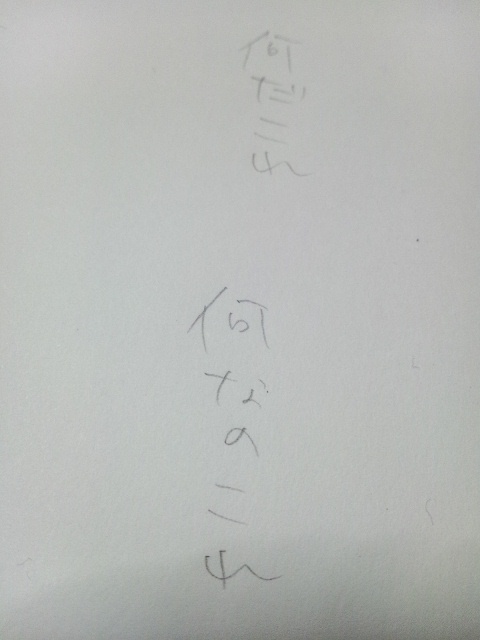 何だこれ
何なのこれ